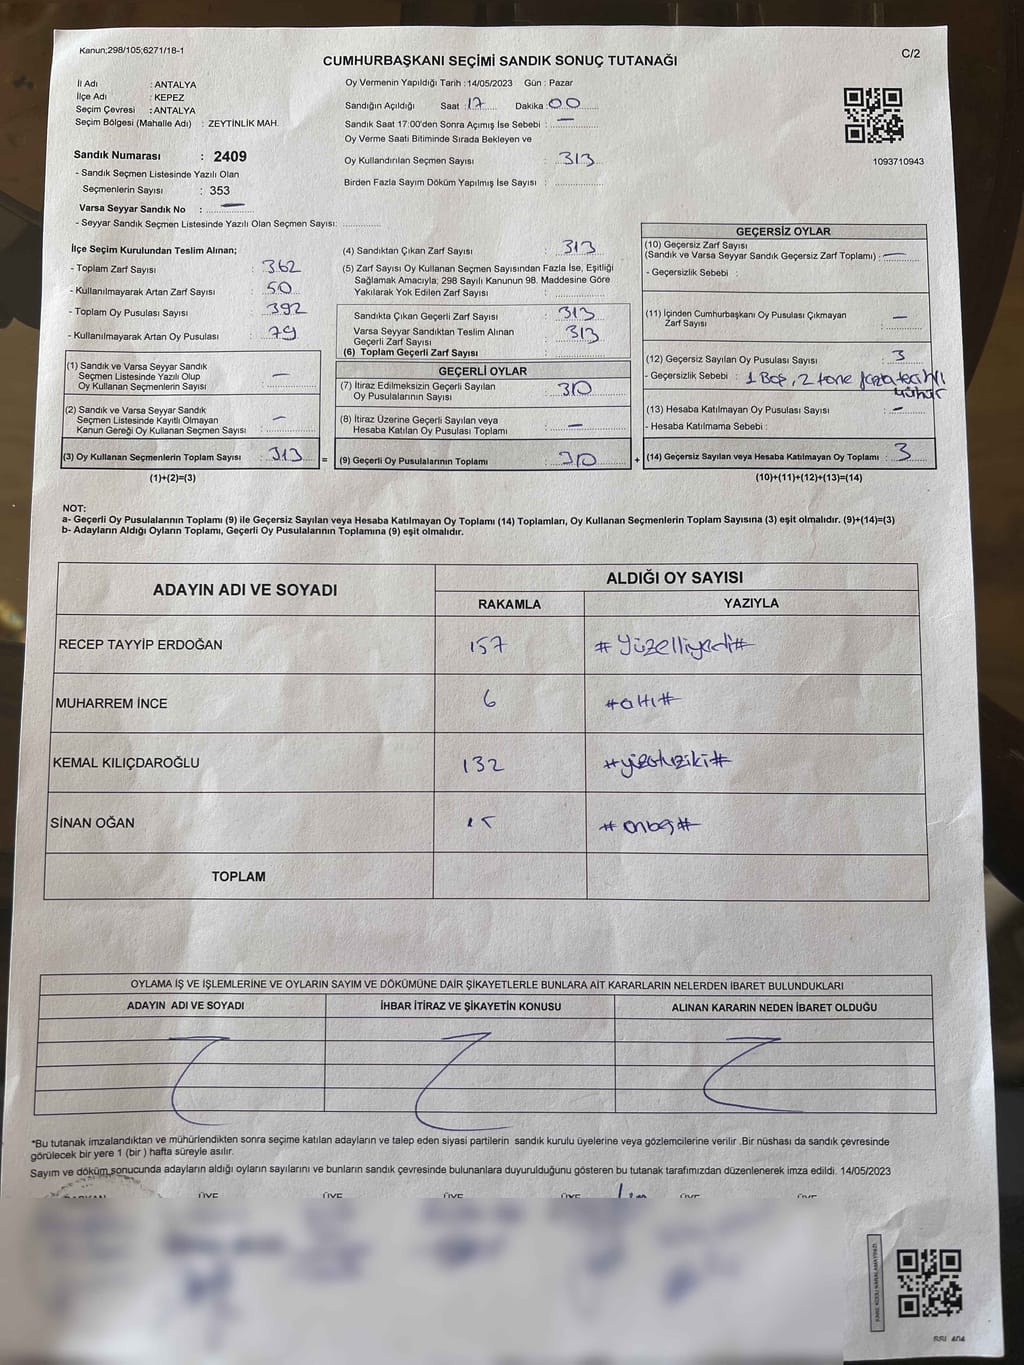 Kanun;298/105;6271/18-1
CUMHURBAŞKANI SEÇİMİ SANDIK SONUÇ TUTANAĞI
C/2
İl Adı : ANTALYA
İlçe Adı : KEPEZ
Seçim Çevresi : ANTALYA
Seçim Bölgesi (Mahalle Adı) : ZEYTİNLİK MAH.
Sandık Numarası : 2409
- Sandık Seçmen Listesinde Yazılı Olan
Seçmenlerin Sayısı : 353
Varsa Seyyar Sandık No : —
- Seyyar Sandık Seçmen Listesinde Yazılı Olan Seçmen Sayısı:
Oy Vermenin Yapıldığı Tarih : 14/05/2023 Gün : Pazar
Sandığın Açıldığı Saat : 17 Dakika : 00
Sandık Saat 17:00'den Sonra Açımış İse Sebebi : —
Oy Verme Saati Bitiminde Sırada Bekleyen ve
Oy Kullandırılan Seçmen Sayısı : 313
Birden Fazla Sayım Döküm Yapılmış İse Sayısı :
1093710943
İlçe Seçim Kurulundan Teslim Alınan;
- Toplam Zarf Sayısı : 362
- Kullanılmayarak Artan Zarf Sayısı : 50
- Toplam Oy Pusulası Sayısı : 392
- Kullanılmayarak Artan Oy Pusulası : 79
(1) Sandık ve Varsa Seyyar Sandık
Seçmen Listesinde Yazılı Olup
Oy Kullanan Seçmenlerin Sayısı : —
(2) Sandık ve Varsa Seyyar Sandık
Seçmen Listesinde Kayıtlı Olmayan
Kanun Gereği Oy Kullanan Seçmen Sayısı : —
(3) Oy Kullanan Seçmenlerin Toplam Sayısı : 313
(1)+(2)=(3)
(4) Sandıktan Çıkan Zarf Sayısı : 313
(5) Zarf Sayısı Oy Kullanan Seçmen Sayısından Fazla İse, Eşitliği
Sağlamak Amacıyla; 298 Sayılı Kanunun 98. Maddesine Göre
Yakılarak Yok Edilen Zarf Sayısı :
Sandıkta Çıkan Geçerli Zarf Sayısı : 313
Varsa Seyyar Sandıktan Teslim Alınan
Geçerli Zarf Sayısı : 313
(6) Toplam Geçerli Zarf Sayısı :
GEÇERLİ OYLAR
(7) İtiraz Edilmeksizin Geçerli Sayılan
Oy Pusulalarının Sayısı : 310
(8) İtiraz Üzerine Geçerli Sayılan veya
Hesaba Katılan Oy Pusulası Toplamı : —
= (9) Geçerli Oy Pusulalarının Toplamı : 310
GEÇERSİZ OYLAR
(10) Geçersiz Zarf Sayısı
(Sandık ve Varsa Seyyar Sandık Geçersiz Zarf Toplamı) : —
- Geçersizlik Sebebi :
(11) İçinden Cumhurbaşkanı Oy Pusulası Çıkmayan
Zarf Sayısı : —
(12) Geçersiz Sayılan Oy Pusulası Sayısı : 3
- Geçersizlik Sebebi : 1 Boş, 2 tane fazla tercihli
mühür
(13) Hesaba Katılmayan Oy Pusulası Sayısı : —
- Hesaba Katılmama Sebebi :
+ (14) Geçersiz Sayılan veya Hesaba Katılmayan Oy Toplamı : 3
(10)+(11)+(12)+(13)=(14)
NOT:
a- Geçerli Oy Pusulalarının Toplamı (9) ile Geçersiz Sayılan veya Hesaba Katılmayan Oy Toplamı (14) Toplamları, Oy Kullanan Seçmenlerin Toplam Sayısına (3) eşit olmalıdır. (9)+(14)=(3)
b- Adayların Aldığı Oyların Toplamı, Geçerli Oy Pusulalarının Toplamına (9) eşit olmalıdır.
ADAYIN ADI VE SOYADI
ALDIĞI OY SAYISI
RAKAMLA YAZIYLA
RECEP TAYYİP ERDOĞAN 157 #Yüzelliyedi#
MUHARREM İNCE 6 #altı#
KEMAL KILIÇDAROĞLU 132 #yüzotuziki#
SİNAN OĞAN 15 #onbeş#
TOPLAM
OYLAMA İŞ VE İŞLEMLERİNE VE OYLARIN SAYIM VE DÖKÜMÜNE DAİR ŞİKAYETLERLE BUNLARA AİT KARARLARIN NELERDEN İBARET BULUNDUKLARI
ADAYIN ADI VE SOYADI İHBAR İTİRAZ VE ŞİKAYETİN KONUSU ALINAN KARARIN NEDEN İBARET OLDUĞU
*Bu tutanak imzalandıktan ve mühürlendikten sonra seçime katılan adayların ve talep eden siyasi partilerin sandık kurulu üyelerine veya gözlemcilerine verilir .Bir nüshası da sandık çevresinde
görülecek bir yere 1 (bir ) hafta süreyle asılır.
Sayım ve döküm sonucunda adayların aldığı oyların sayılarını ve bunların sandık çevresinde bulunanlara duyurulduğunu gösteren bu tutanak tarafımızdan düzenlenerek imza edildi. 14/05/2023
BAŞKAN ÜYE ÜYE ÜYE ÜYE ÜYE ÜYE